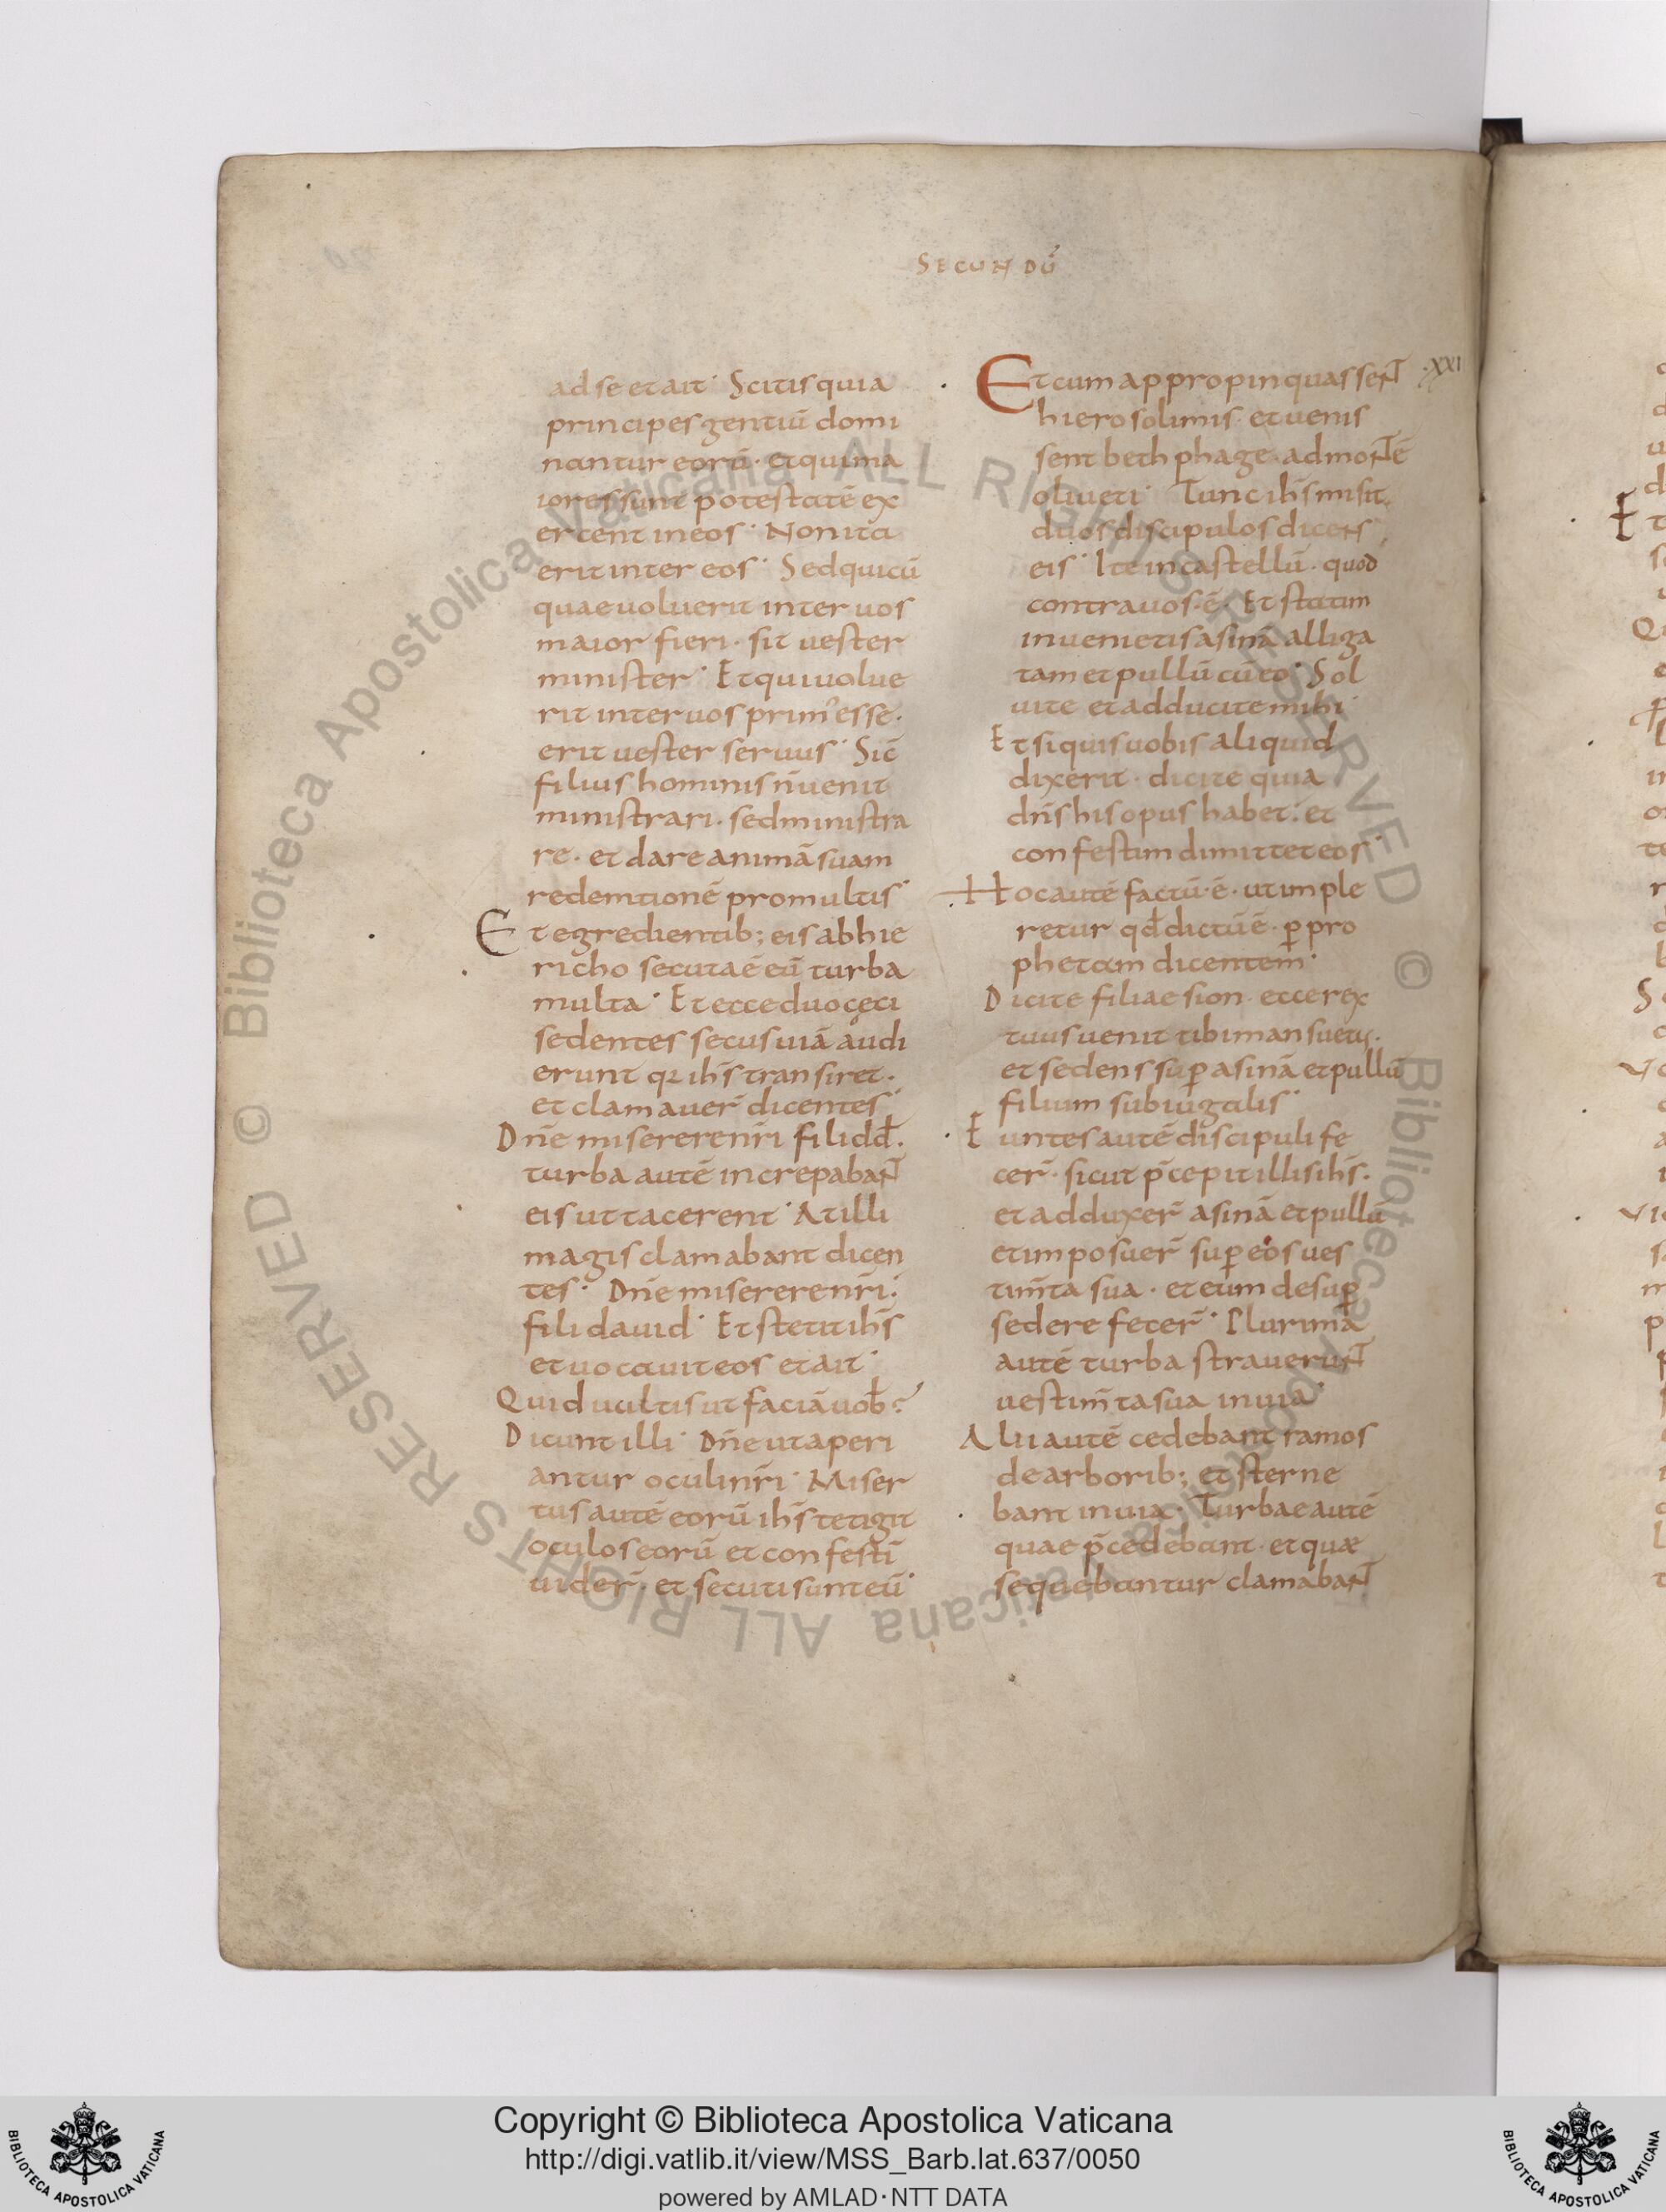 SECUNDŪ
ad se et ait· Scitis quia
principes gentiū domi
nantur eorū· et qui ma
iores sunt potestatē ex
ercent in eos· Non ita
erit inter eos· Sed quicū
quae voluerit inter vos
maior fieri· sit vester
minister· Et qui volue
rit inter vos prim᾿ esse·
erit vester servus· Sic̄
filius hominis n̄ venit
ministrari· sed ministra
re· et dare animā suam
redemtionē pro multis·
Et egredientib; eis ab hie
richo secuta ē eū turba
multa· Et ecce duo cęci
sedentes secus viā audi
erunt qꝛ ih̄s transiret·
et clamaver̄ dicentes·
Dn̄e miserere nr̄i fili dd̄·
turba autē increpabant
eis ut tacerent· At illi
magis clamabant dicen
tes· Dn̄e miserere nr̄i·
fili david· Et stetit ih̄s
et vocavit eos et ait·
Quid vultis ut faciā vob̄?
Dicunt illi· Dn̄e ut aperi
antur oculi nr̄i· Miser
tus autē eorū ih̄s tetigit
oculos eorū et confestī
vider̄· et secuti sunt eū·
Et cum appropinquassent ·XXI
hierosolimis· et venis
sent bethphage· ad montē
oliveti· Tunc ih̄s misit
duos discipulos dicens
eis· Ite in castellū· quod
contra vos· ē· Et statim
invenietis asinā alliga
tam et pullū cū eo· Sol
vite et adducite mihi·
Et si quis vobis aliquid
dixerit· dicite quia
dn̄s his opus habet· et
confestim dimittet eos·
Hoc autē factū· ē· ut imple
retur qd̄ dictū ē· ꝑ pro
phetam dicentem·
Dicite filiae sion· ecce rex
tuus venit tibi mansuetus·
et sedens suꝑ asinā et pullū
filium subiugalis·
Euntes autē discipuli fe
cer̄· sicut p̄cepit illis ih̄s·
et adduxer̄ asinā et pullū
et imposuer̄ suꝑ eos ves
tim̄ta sua· et eum desuꝑ
sedere fecer̄· Plurima
autē turba straverunt
vestim̄ta sua in via·
Alii autē cedebant ramos
de arborib; et sterne
bant in via· Turbae autē
quae p̄cedebant· et quæ
sequebantur clamabant
Copyright © Biblioteca Apostolica Vaticana
http://digi.vatlib.it/view/MSS_Barb.lat.637/0050
powered by AMLAD·NTT DATA
BIBLIOTECA APOSTOLICA VATICANA
BIBLIOTECA APOSTOLICA VATICANA
© Biblioteca Apostolica Vaticana ALL RIGHTS RESERVED © Biblioteca Apostolica Vaticana ALL RIGHTS RESERVED